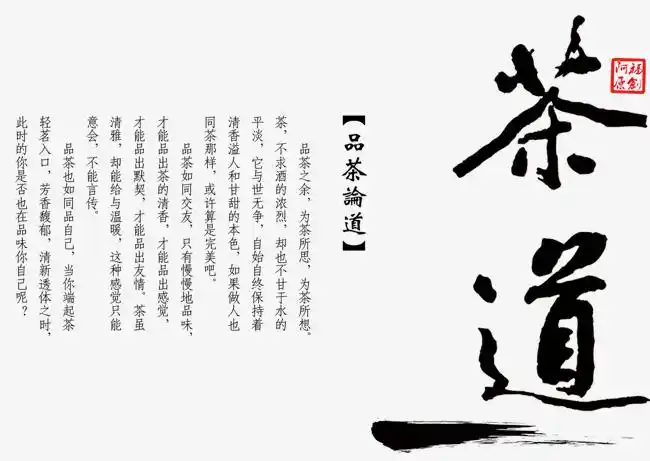 茶道
【品茶論道】
品茶之余，为茶所思，为茶所想。
茶，不求酒的浓烈，却也不甘于水的
平淡，它与世无争，自始自终保持着
清香溢人和甘甜的本色，如果做人也
同茶那样，或许算是完美吧。
品茶如同交友，只有慢慢地品味，
才能品出茶的清香，才能品出感觉，
才能品出默契，才能品出友情。茶虽
清雅，却能给与温暖，这种感觉只能
意会，不能言传。
品茶也如同品自己，当你端起茶
轻茗入口，芳香馥郁，清新透体之时，
此时的你是否也在品味你自己呢？